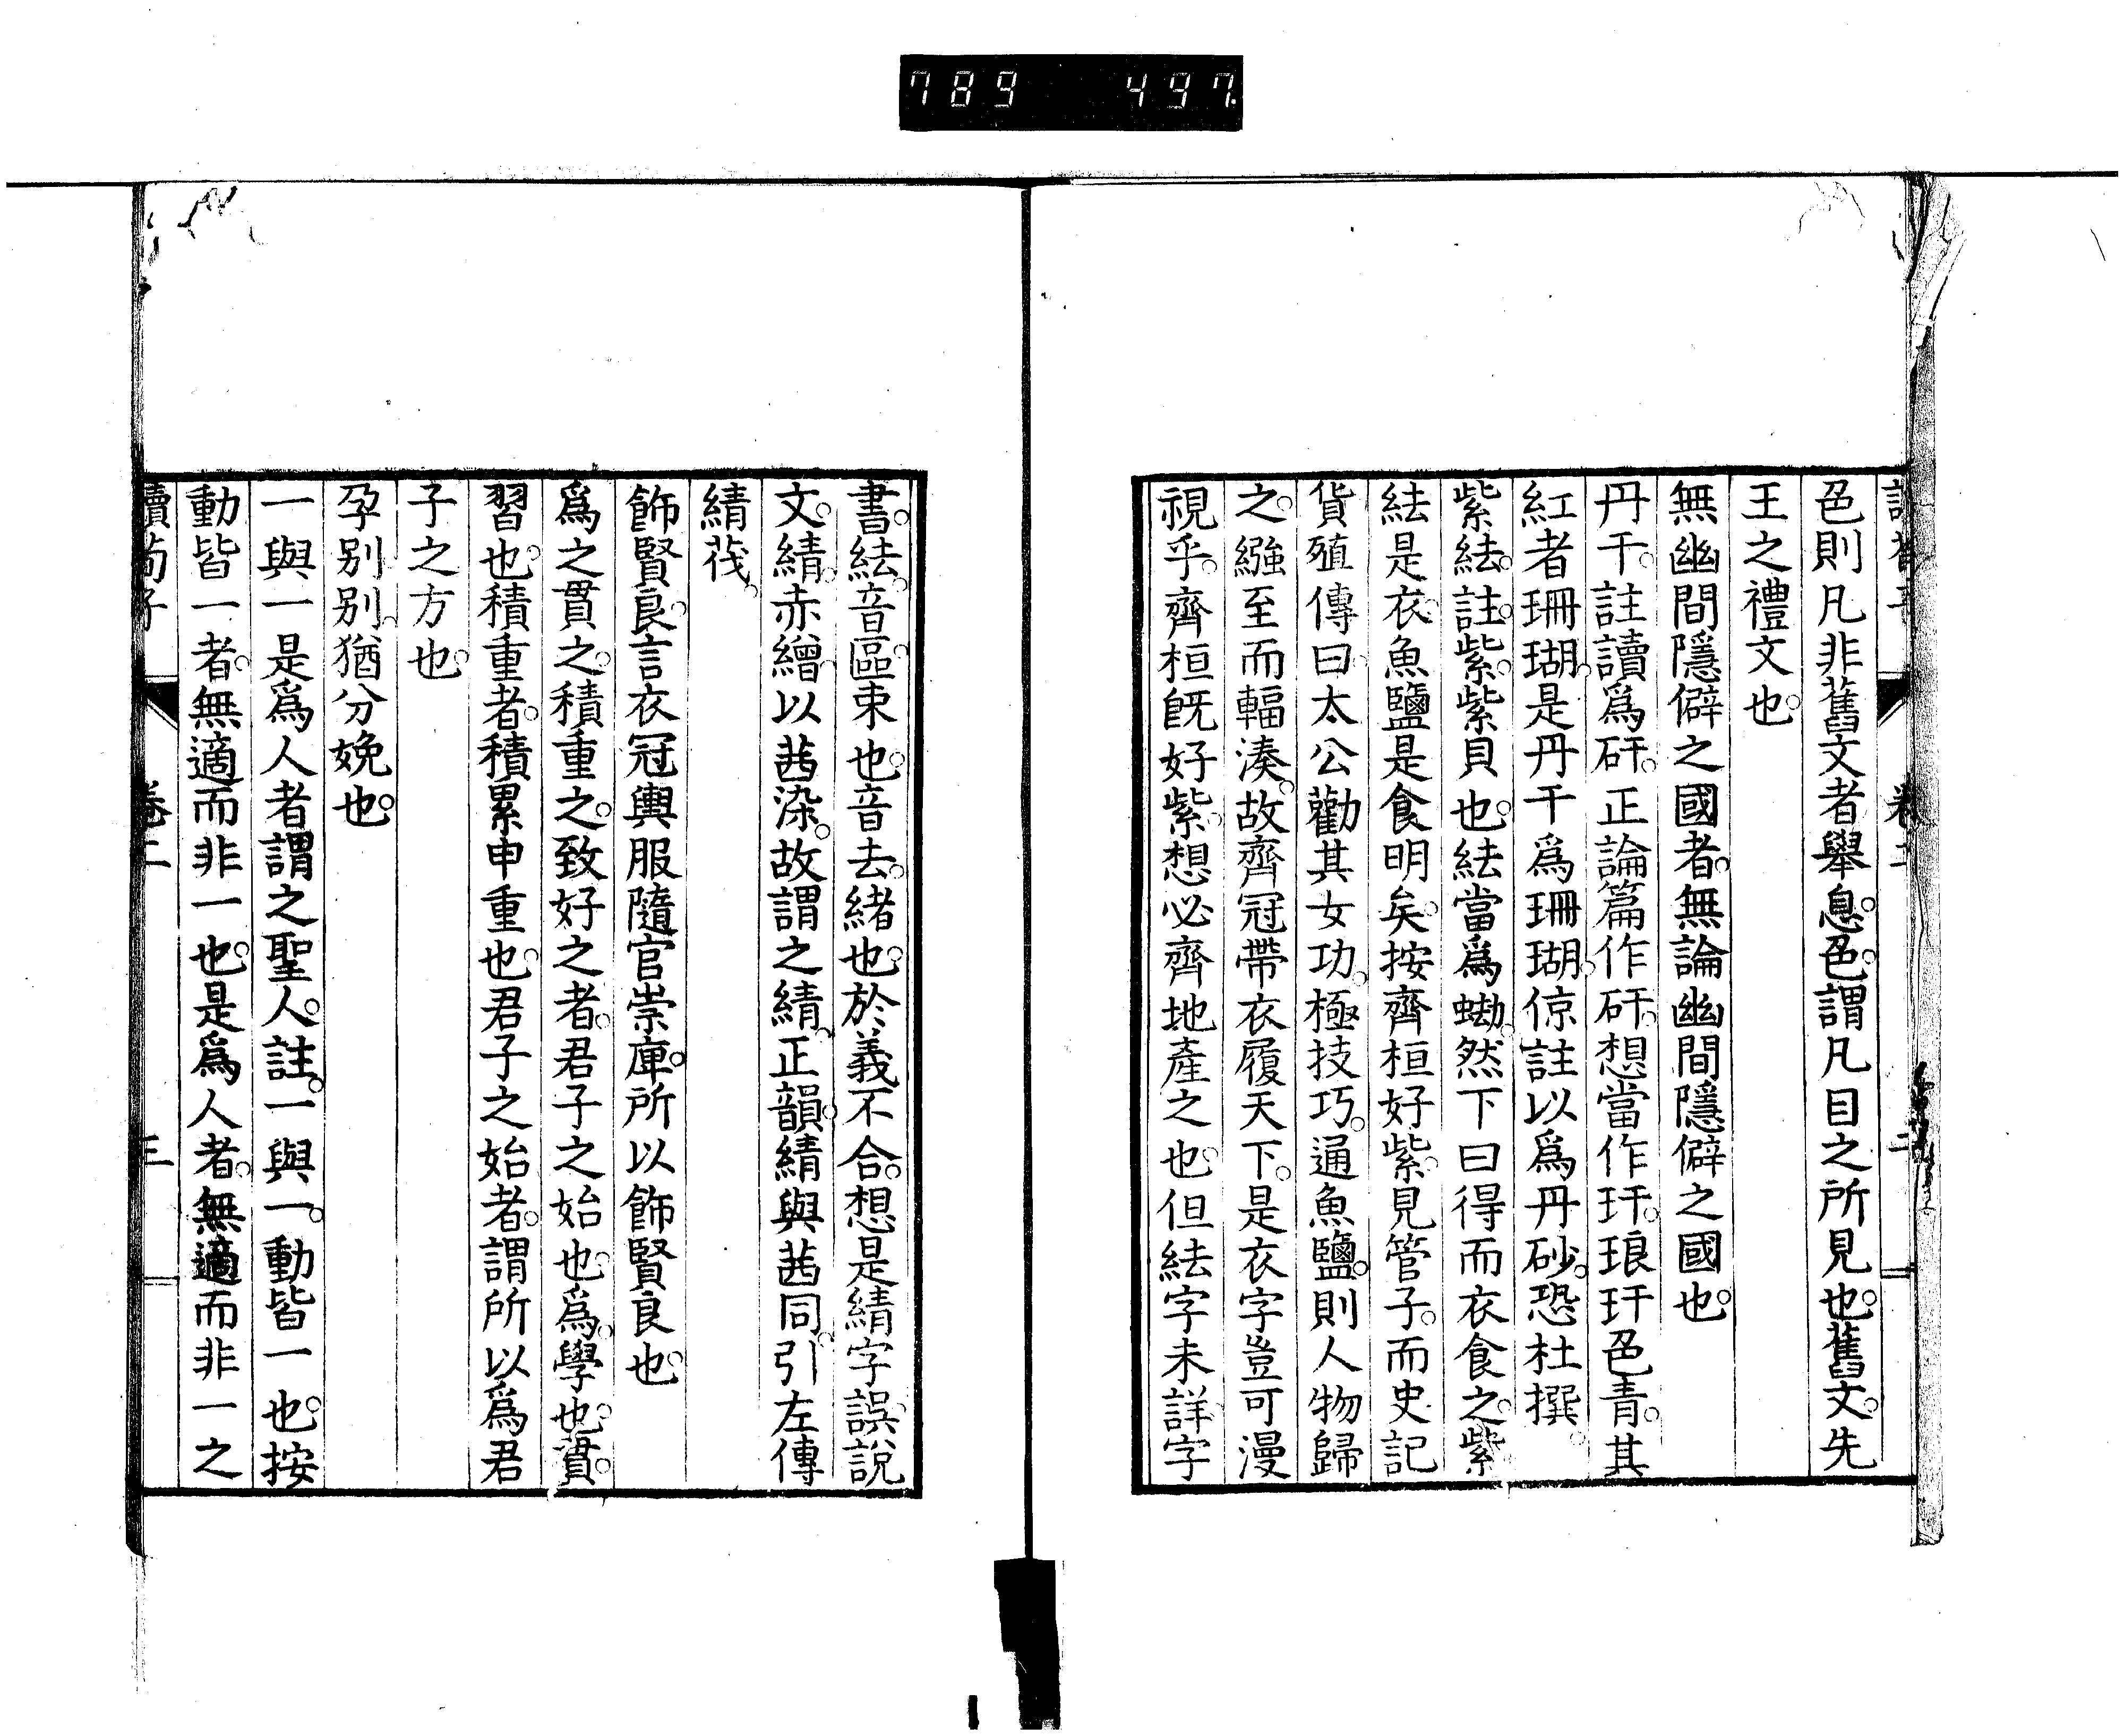 789 497
色則凡非舊文者舉息。色。謂凡目之所見也。舊文。先
王之禮文也。
無幽間隱僻之國者。無論幽間隱僻之國也。
丹干。註讀爲矸。正論篇作矸。想當作玕。琅玕色青。其
紅者珊瑚。是丹干爲珊瑚。倞註以爲丹砂。恐杜撰。
紫紶。註。紫。紫貝也。紶當爲蜐。然下曰得而衣食之。紫
紶是衣。魚鹽是食明矣。按齊桓好紫。見管子。而史記
貨殖傳曰。太公勸其女功。極技巧。通魚鹽。則人物歸
之。繦至而輻湊。故齊冠帶衣履天下。是衣字豈可漫
視乎。齊桓既好紫。想必齊地產之也。但紶字未詳。字
書。紶。音區。束也。音去。緒也。於義不合。想是綪字誤。說
文。綪。赤繒。以茜染。故謂之綪。正韻。綪與茜同。引左傳
綪茷。
飾賢良。言衣冠輿服隨官崇庳。所以飾賢良也。
爲之貫之。積重之。致好之者。君子之始也。爲。學也。貫。
習也。積重者。積累申重也。君子之始者。謂所以爲君
子之方也。
孕別別。猶分娩也。
一與一是爲人者謂之聖人。註。一與一。動皆一也。按
動皆一者。無適而非一也。是爲人者。無適而非一之
讀荀子 卷二 三